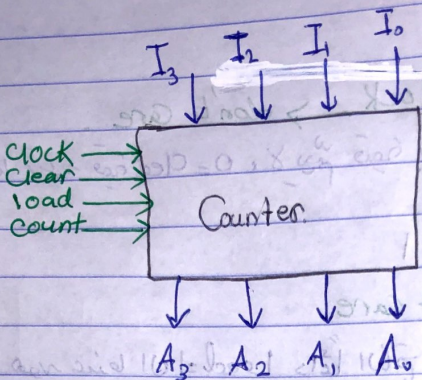 I₃ I₂ I₁ I₀
Clock
Clear
load
Count
Counter
A₃ A₂ A₁ A₀